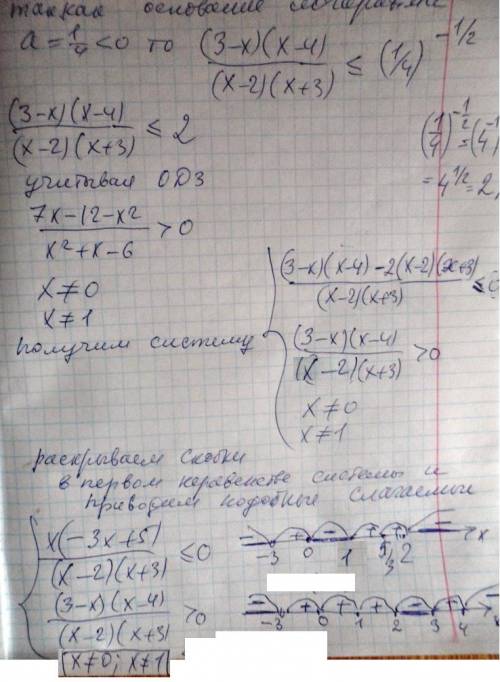 так как основание логарифма
a = 1/4 < 0 то (3-x)(x-4)/(x-2)(x+3) ≤ (1/4)^(-1/2)
(3-x)(x-4)/(x-2)(x+3) ≤ 2
(1/4)^(-1/2) = (4^(-1)
= 4^(1/2) = 2,
учитывая ОДЗ
7x-12-x²/x²+x-6 > 0
x ≠ 0
x ≠ 1
получим систему
{ (3-x)(x-4)-2(x-2)(x+3)/(x-2)(x+3) ≤ 0
(3-x)(x-4)/(x-2)(x+3) > 0
x ≠ 0
x ≠ 1
раскрываем скобки
в первом неравенстве системы и
приводим подобные слагаемые
{ x(-3x+5)/(x-2)(x+3) ≤ 0
- -3 + 0 - 1 + 5/3 + 2 - x
(3-x)(x-4)/(x-2)(x+3) > 0
- -3 + 0 + 1 + 2 - 3 + 4 -
x≠0; x≠1